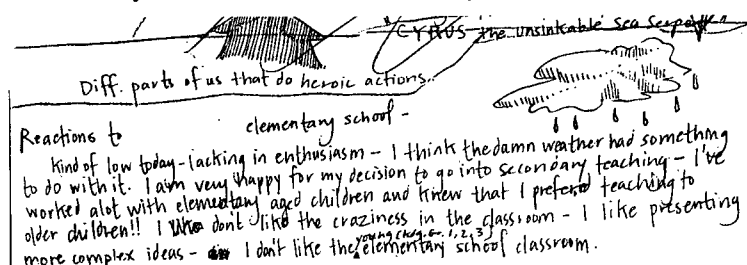 "CYRUS the unsinkable Sea Serpent"
Diff. parts of us that do heroic actions.
Reactions to elementary school -
Kind of low today - lacking in enthusiasm - I think the damn weather had something
to do with it. I am very happy for my decision to go into secondary teaching - I've
worked alot with elementary aged children and knew that I prefered teaching to
older children!! I don't like the craziness in the classroom - I like presenting
more complex ideas - I don't like the young (kdg. 1, 2, 3) elementary school classroom.